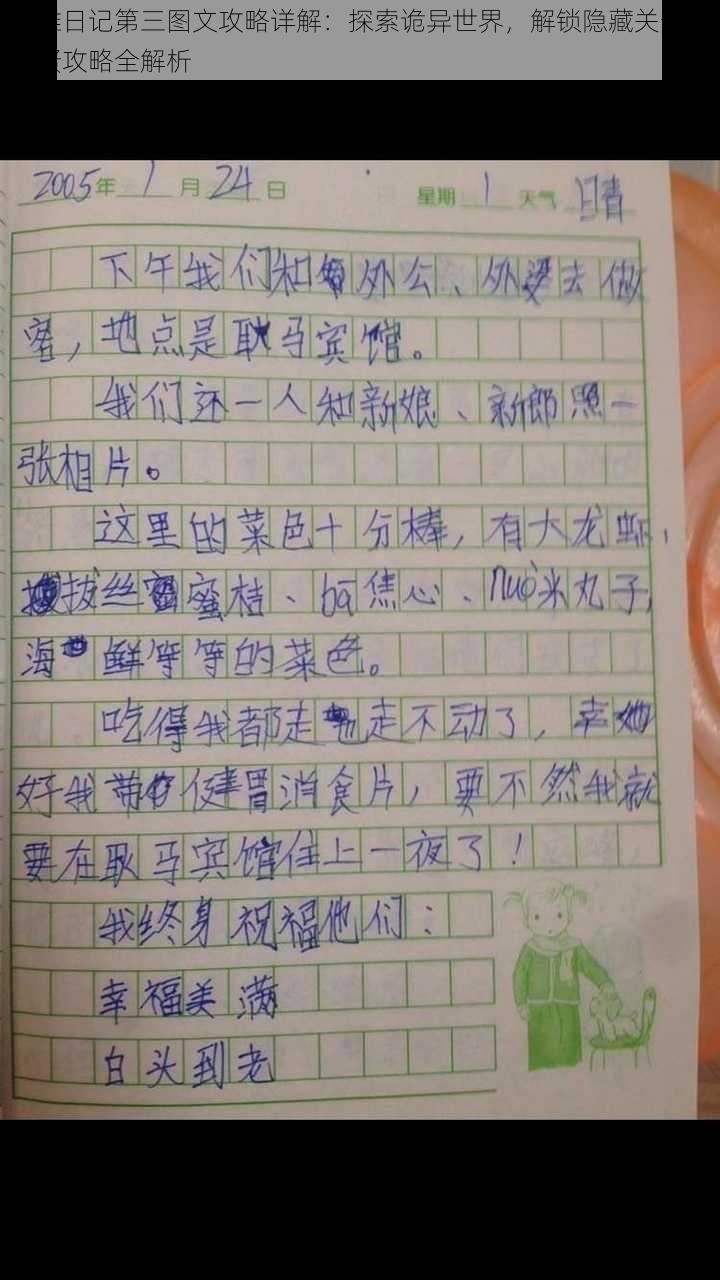 日记第三图文攻略详解：探索诡异世界，解锁隐藏关
攻略全解析
2005年1月24日 星期1 天气晴
下午我们和外公、外婆去做
客，地点是耿马宾馆。
我们还一人和新娘、新郎照一
张相片。
这里的菜色十分棒，有大龙虾，
拔丝蜜桔、bā焦心、nuò米丸子，
海鲜等等的菜色。
吃得我都走也走不动了，幸
好我带健胃消食片，要不然我就
要在耿马宾馆住上一夜了！
我终身祝福他们：
幸福美满
白头到老